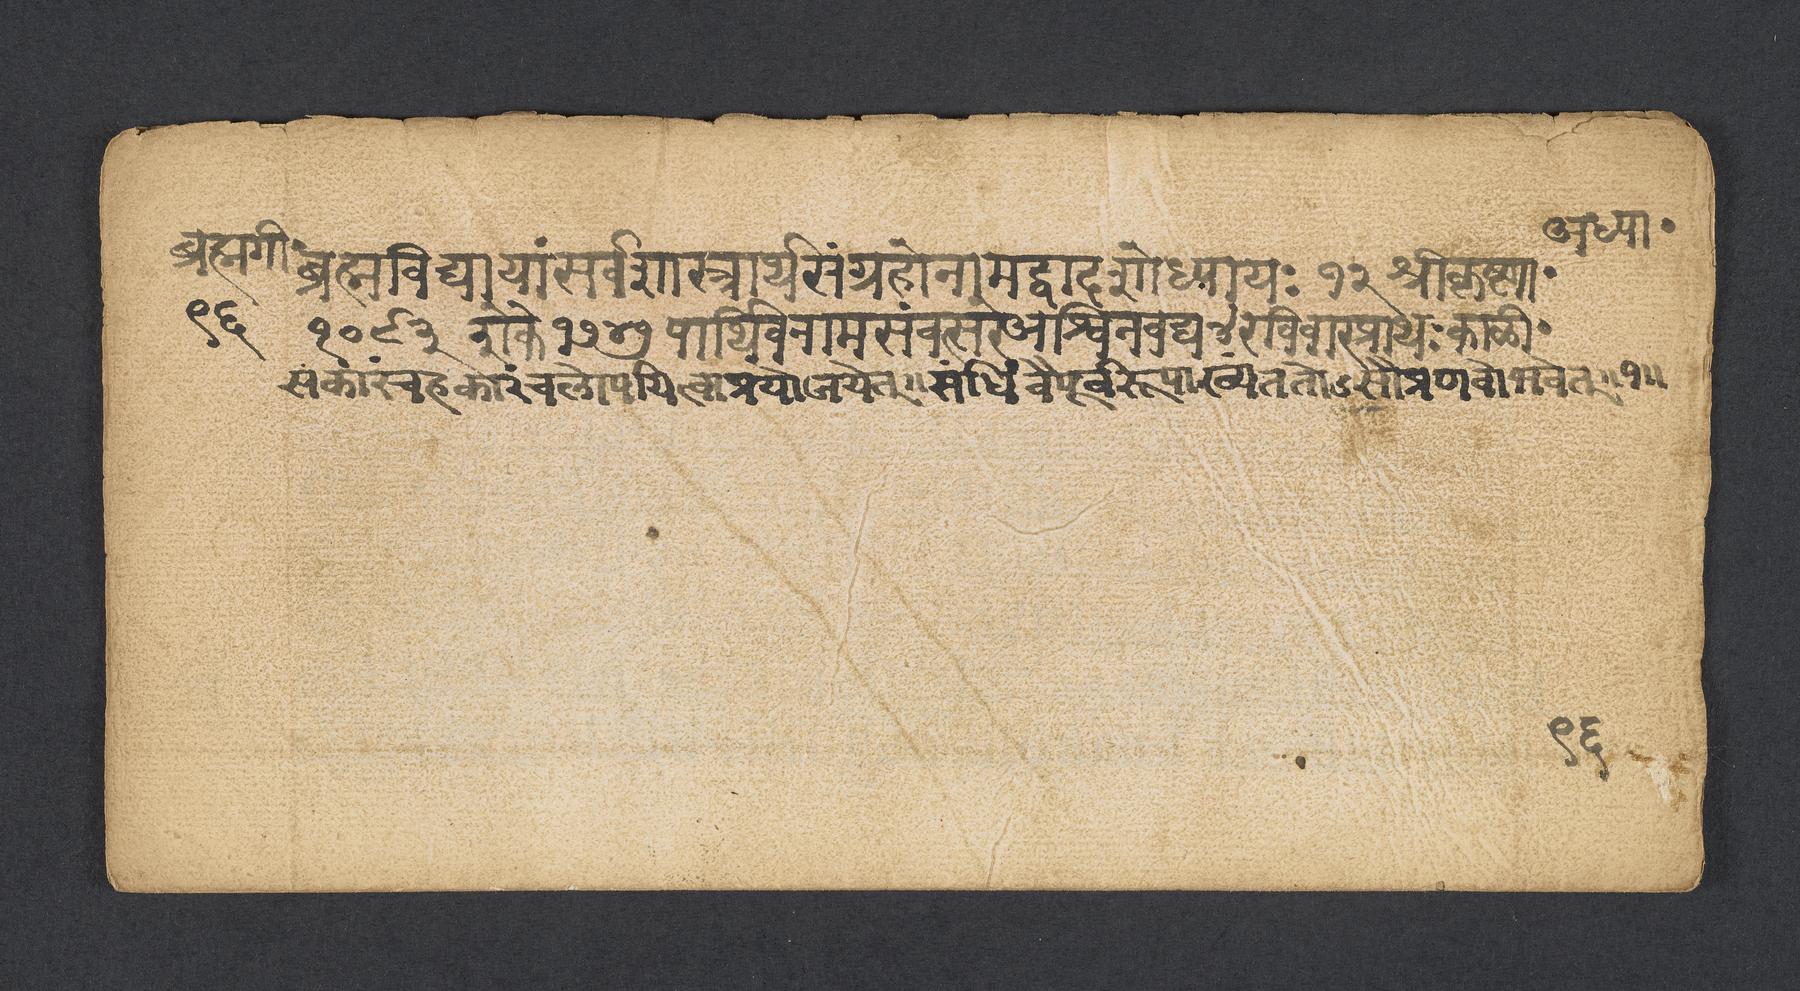 अध्या॰
ब्रह्मगी॰
ब्रह्मविद्यायांसर्वशास्त्रार्थसंग्रहोनामद्वादशोध्यायः १२ श्रीकृष्णा॰
९६
शके १७४७ पार्थिविनामसंवत्सरेअश्विनवद्य रविवारप्रातःकाळी॰
सकारंचहकारंचलोपयित्वाप्रयोजयेत्॥संधिंवैपूर्वरूपाख्यंततोऽसौप्रणवोभवेत्॥१॥
९६